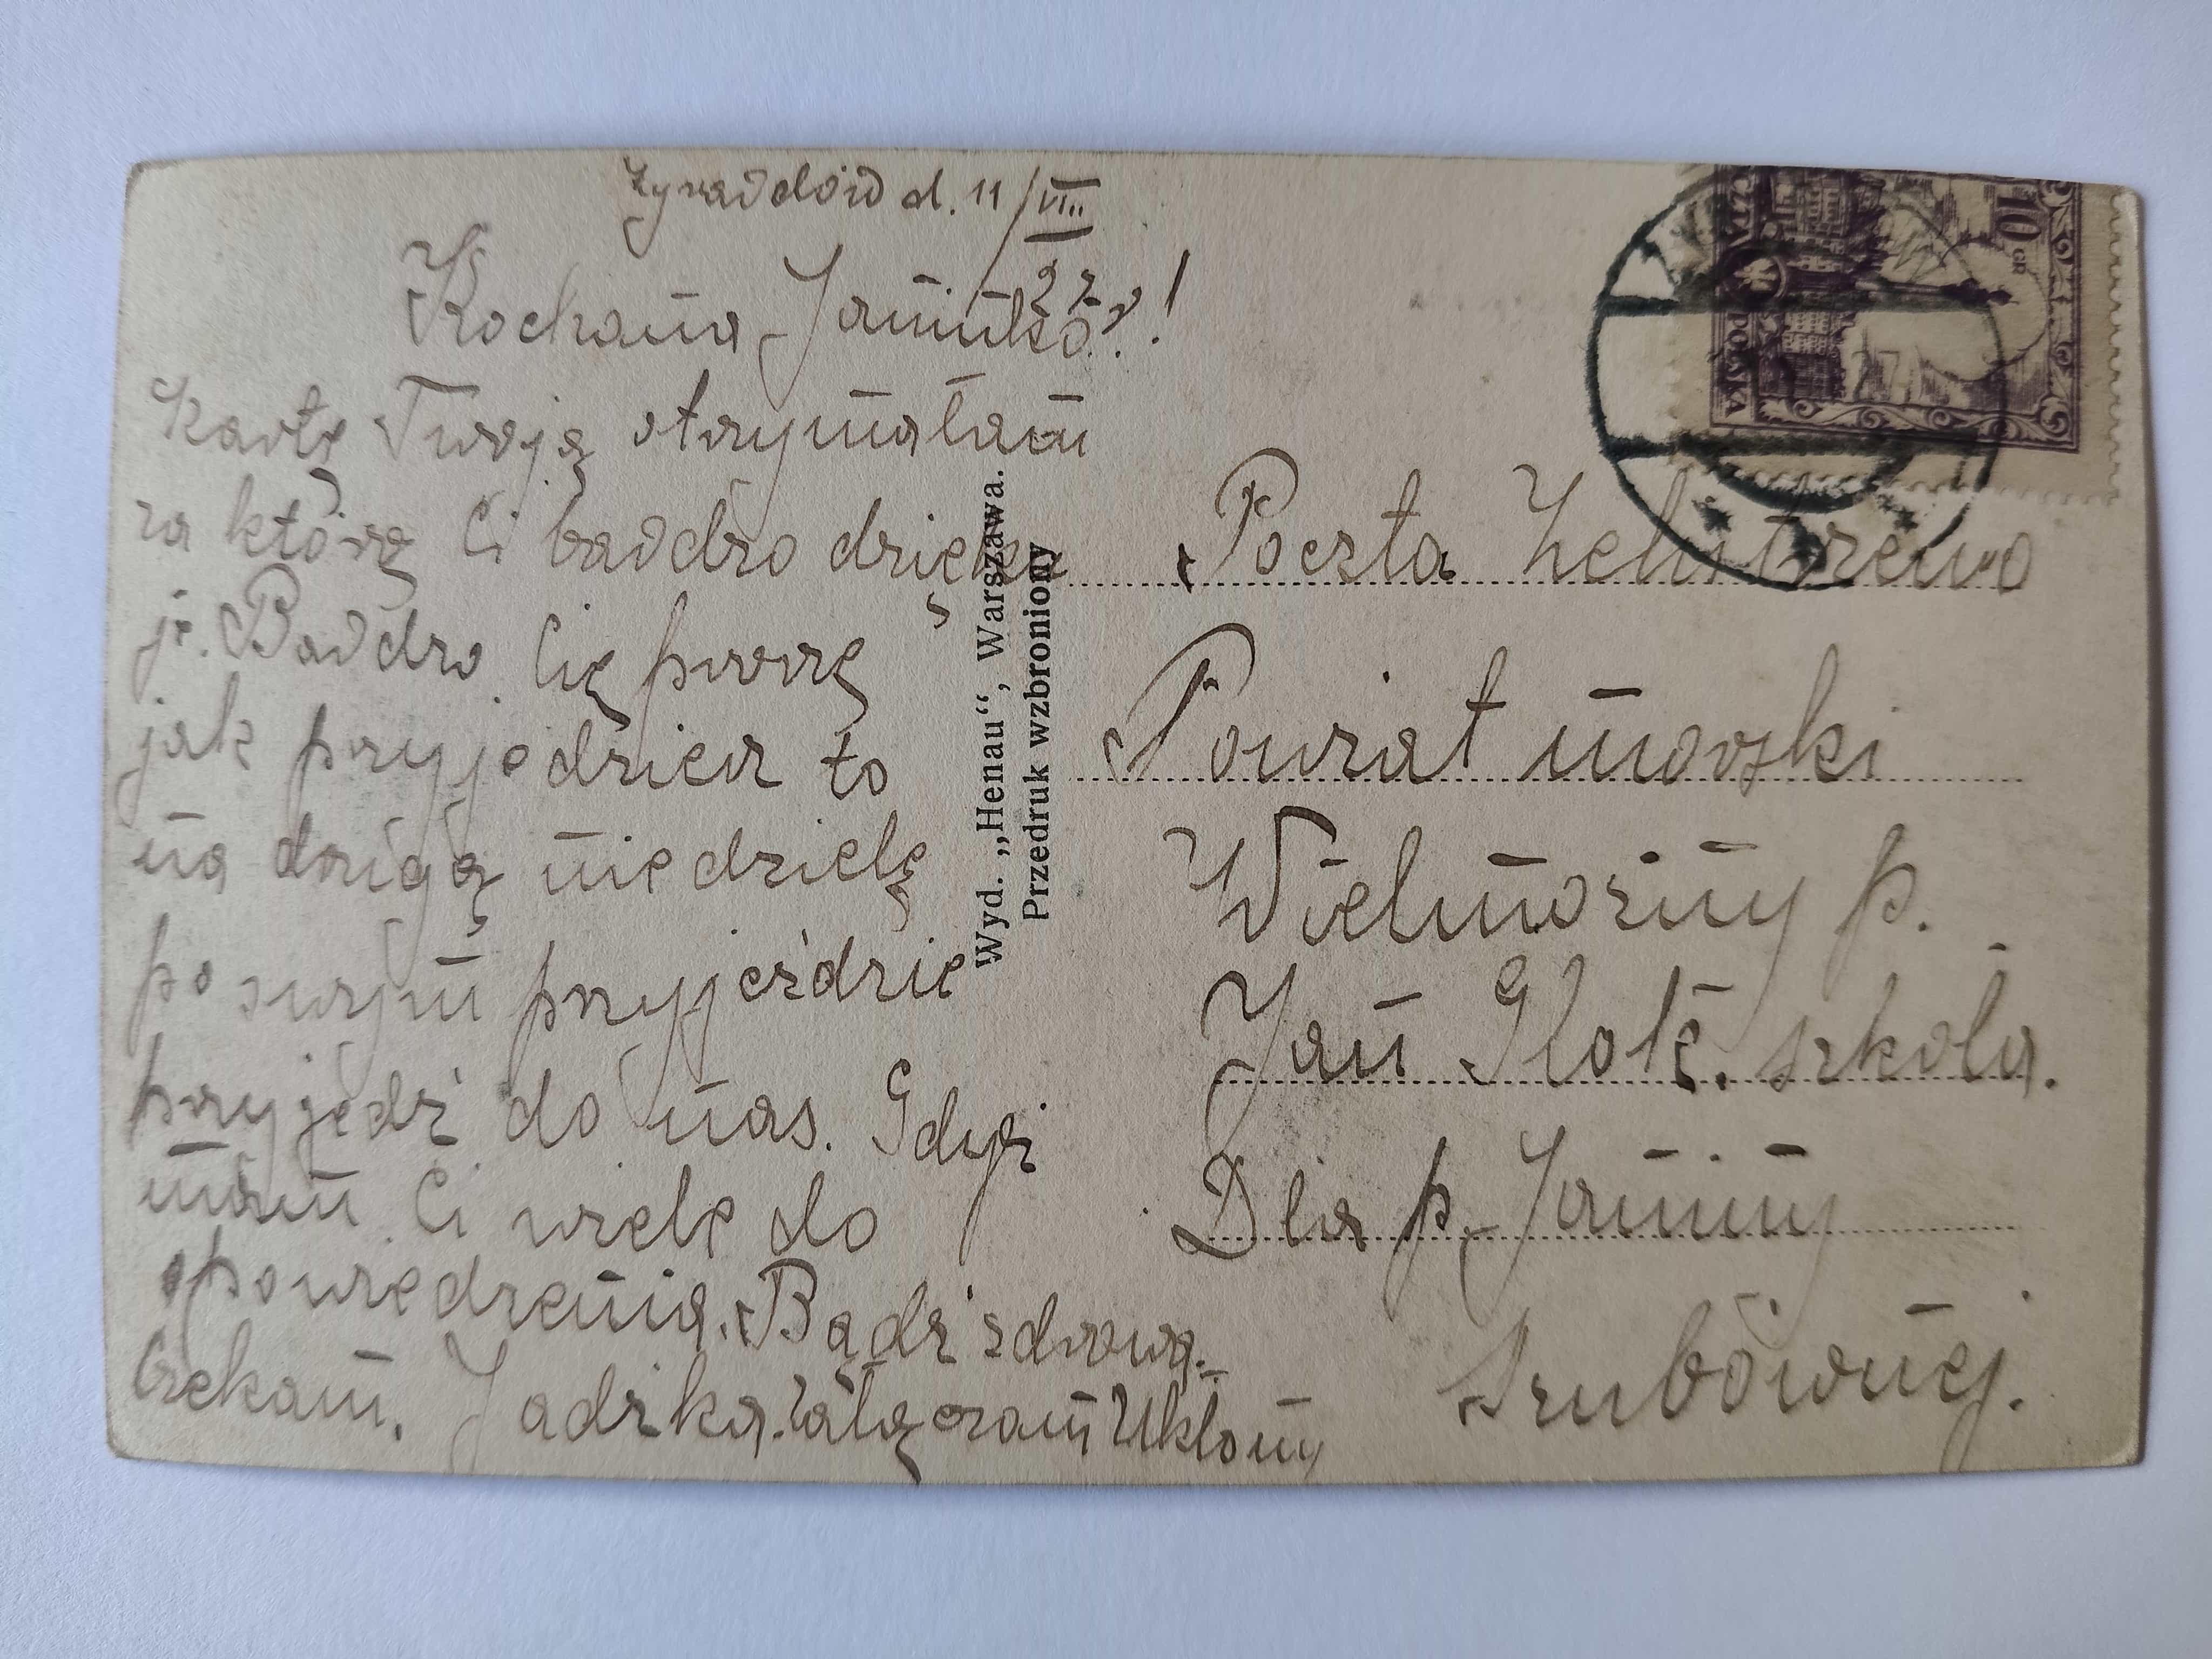 d. 11/VIII
27 r!
Kochana Janinko!
Kartę Twoją otrzymałam
za którą Ci bardzo dzięku
ję. Bardzo Cię proszę
jak przyjedziesz to
na drugą niedzielę
po swojm przyjeździe
przyjedź do nas. Gdyż
mam Ci wiele do
opowiedzenia. Bądź zdrowa.
Czekam. Jadzka. załączam Ukłony
Wyd. „Henau“, Warszawa.
Przedruk wzbroniony
10 GR
POCZTA POLSKA
Poczta
Powiat morski
Wielmożny p.
Jan szkoła.
Dla p. Janiny